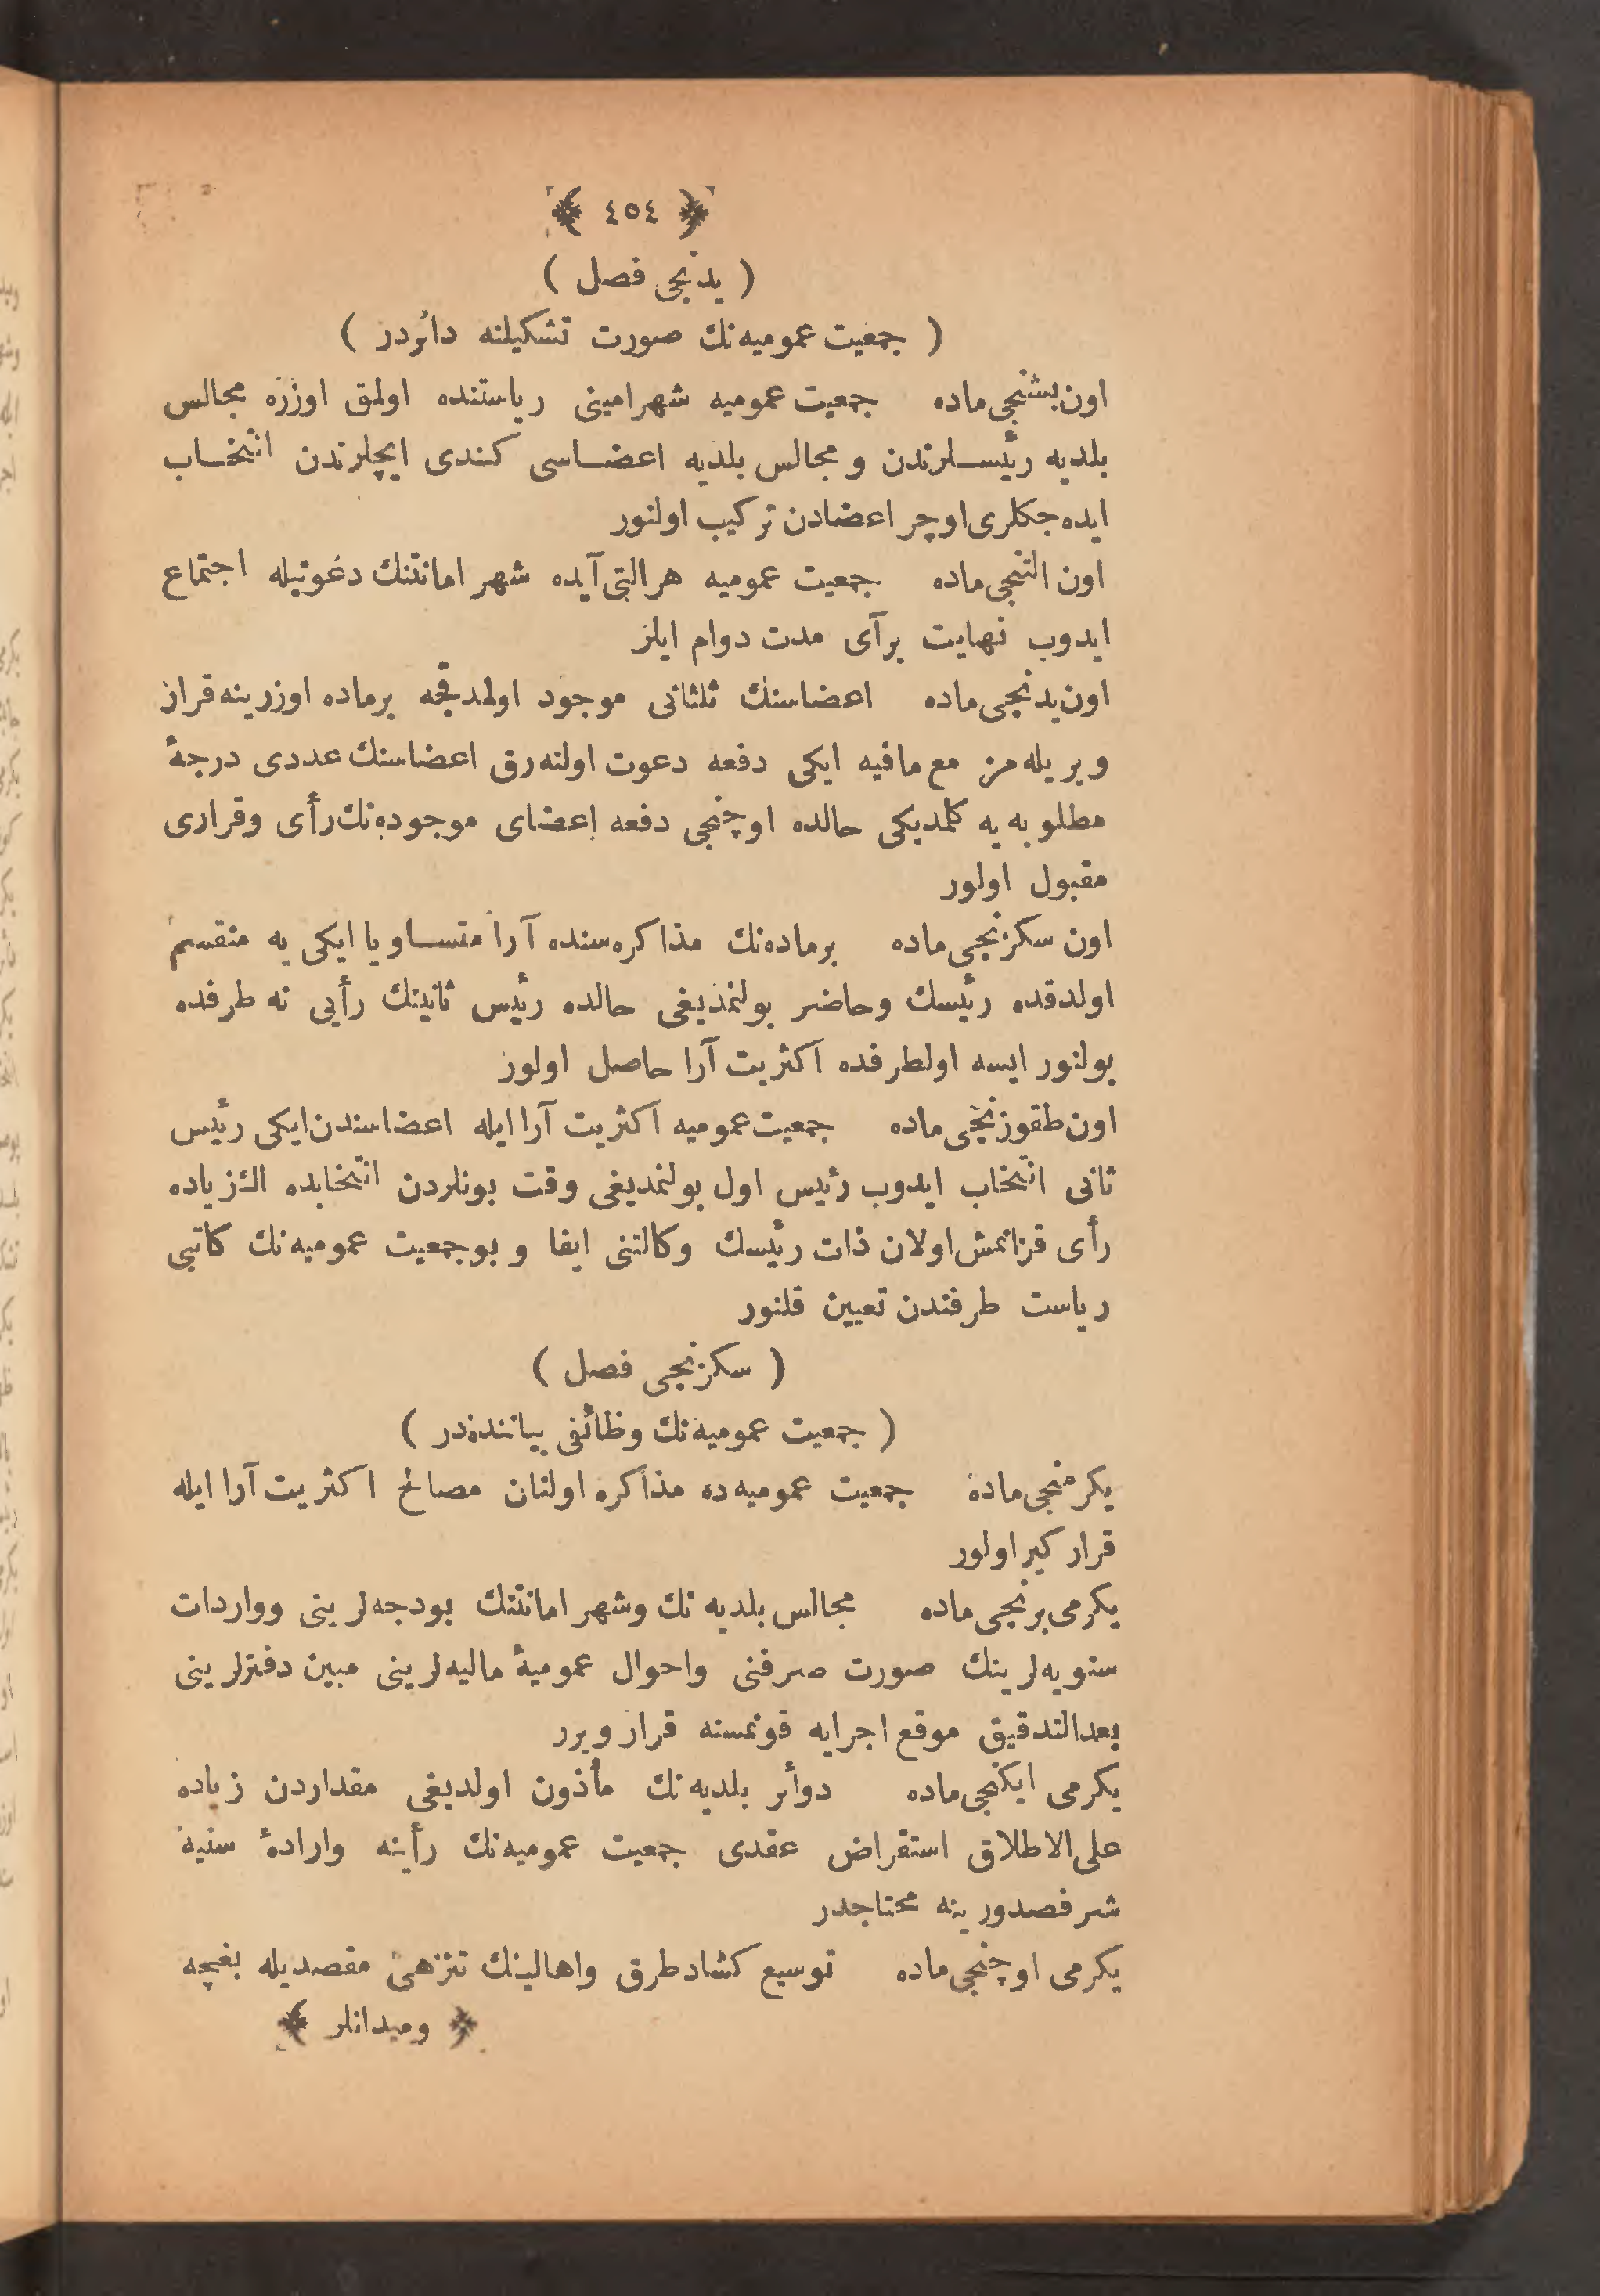 ﴿ ٤٥٤ ﴾
( یدنجی فصل )
( جمعیت عمومیه‌نك صورت تشكیلنه دائردر )
اون بشنجی ماده جمعیت عمومیه شهرامینی ریاستنده اولمق اوزره مجالس
بلدیه رئیسلرندن و مجالس بلدیه اعضاسی كندی ایچلرندن انتخاب
ایده جكلری اوچر اعضادن تركیب اولنور
اون التنجی ماده جمعیت عمومیه هر التی آیده شهر امانتنك دعوتیله اجتماع
ایدوب نهایت برآی مدت دوام ایلر
اون یدنجی ماده اعضاسنك ثلثانی موجود اولمدقجه برماده اوزرینه قرار
ویریله‌مز مع مافیه ایكی دفعه دعوت اولنه‌رق اعضاسنك عددی درجهٔ
مطلوبه یه كلمدیكی حالده اوچنجی دفعه اعضای موجوده‌نك رأی وقراری
مقبول اولور
اون سكزنجی ماده برماده‌نك مذاكره‌سنده آرا متساویا ایكی یه منقسم
اولدقده رئیسك وحاضر بولنمدیغی حالده رئیس ثانینك رأیی نه طرفده
بولنور ایسه اولطرفده اكثریت آرا حاصل اولور
اون طقوزنجی ماده جمعیت عمومیه اكثریت آرا ایله اعضاسندن ایكی رئیس
ثانی انتخاب ایدوب رئیس اول بولنمدیغی وقت بونلردن انتخابده الك زیاده
رأی قزانمش اولان ذات رئیسك وكالتنی ایفا و بو جمعیت عمومیه‌نك كاتبی
ریاست طرفندن تعیین قلنور
( سكزنجی فصل )
( جمعیت عمومیه‌نك وظائفی بیاننده‌در )
یكرمنجی ماده جمعیت عمومیه‌ده مذاكره اولنان مصالح اكثریت آرا ایله
قرار كیر اولور
یكرمی برنجی ماده مجالس بلدیه نك وشهر امانتنك بودجه‌لرینی وواردات
سنویه‌لرینك صورت صرفنی واحوال عمومیهٔ مالیه‌لرینی مبین دفترلرینی
بعدالتدقیق موقع اجرایه قونمسنه قرار ویرر
یكرمی ایكنجی ماده دوائر بلدیه نك مأذون اولدیغی مقداردن زیاده
علی الاطلاق استقراض عقدی جمعیت عمومیه‌نك رأینه وارادهٔ سنیه
شرفصدورینه محتاجدر
یكرمی اوچنجی ماده توسیع كشاد طرق واهالینك تنزهی مقصدیله بغچه
﴿ ومیدانلر ﴾